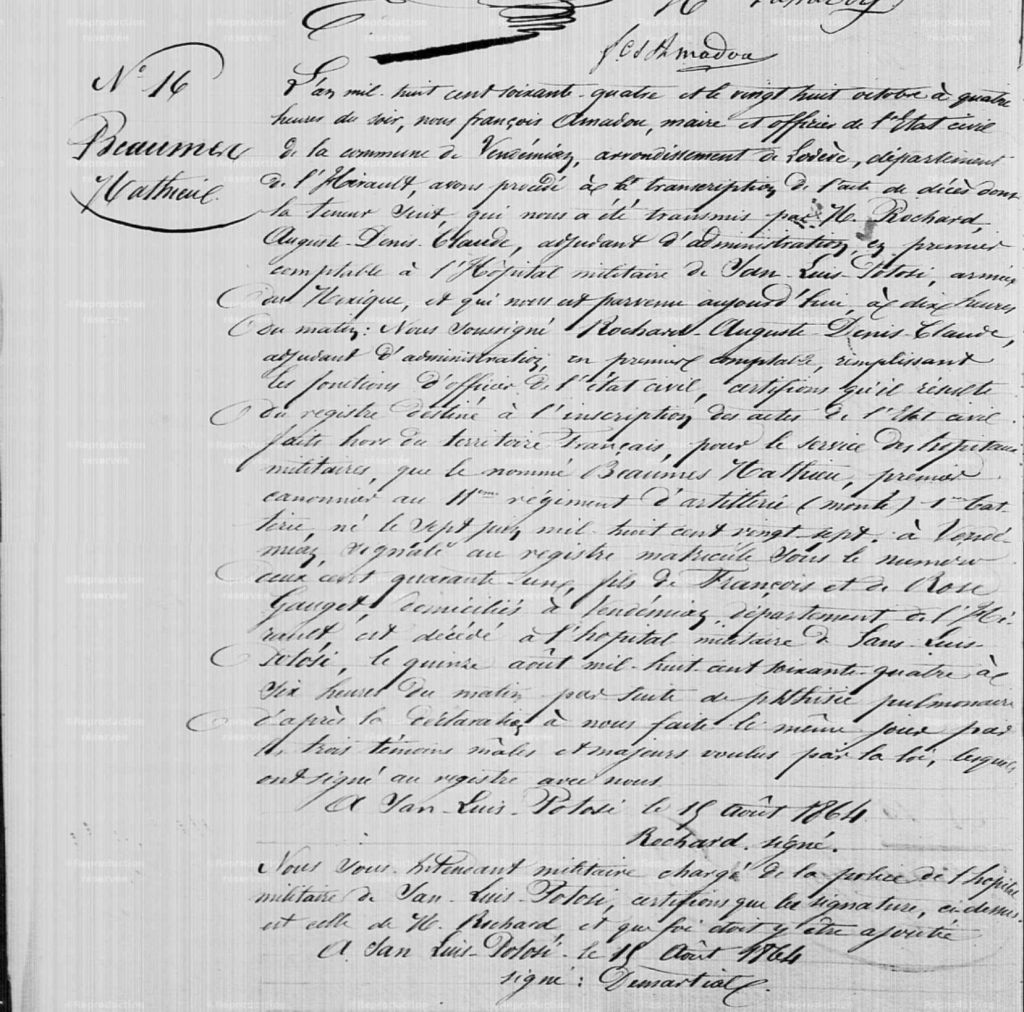 fcs Amadou
N° 16
Beaumes
Mathieu.
L'an mil huit cent soixante-quatre et le vingt huit octobre à quatre
heures du soir, nous françois Amadou, maire et officier de l'Etat civil
de la commune de Vendémian, arrondissement de Lodève, département
de l'Hérault, avons procédé à la transcription de l'acte de décès dont
la teneur suit, qui nous a été transmis par M. Rochard,
Auguste-Denis-Claude, adjudant d'administration, en premier
comptable à l'Hôpital militaire de San-Luis-Potosi, armée
du Mexique, et qui nous est parvenu aujourd'hui, à dix heures
du matin: Nous soussigné Rochard-Auguste-Denis-Claude,
adjudant d'administration, en premier comptable, remplissant
les fonctions d'officier de l'état civil, certifions qu'il résulte
du registre destiné à l'inscription des actes de l'Etat civil
faits hors du territoire Français, pour le service des hopitaux
militaires, que le nommé Beaumes Mathieu, premier
canonnier au 11eme régiment d'artillerie (monté) 1re bat
terie, né le sept juin mil huit cent vingt sept, à Vendé
mian, signalé au registre matricule sous le numéro
deux cent quarante-un, fils de François et de Rose
Gauget, domiciliés à Vendémian, département de l'Hé-
rault, est décédé à l'hopital militaire de Sans-Luis-
Potosi, le quinze août mil-huit-cent soixante-quatre à
six heures du matin par suite de phthisie pulmonaire
d'après la déclaration à nous faite le même jour par
les trois témoins mâles et majeurs voulus par la loi, lesquels
ont signé au registre avec nous.
A San-Luis-Potosi le 15 Août 1864
Rochard. signé.
Nous sous-intendant militaire chargé de la police de l'hopital
militaire de San-Luis-Potosi, certifions que la signature, ci-dessus,
est celle de M. Rochard, et que foi doit y être ajoutée
A San Luis-Potosi-le 15 Août 1864
signé: Demartial.